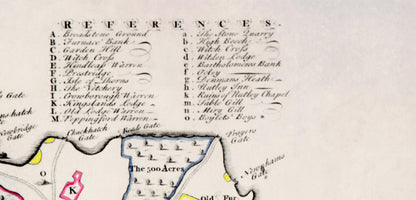 REFERENCES.
A. Broadstone Ground
B. Furnace Bank
C. Garden Hill
D. Witch Cross
E. Hindleap Warren
F. Prestridge
G. Isle of Thorns
H. The Vetchery
I. Crowborough Warren
K. Kingslands Lodge
L. Old Lodge Warren
M. Poppingford Warren
a. The Stone Quarry
b. High Beech
c. Witch Cross
d. Wilden Lodge
e. Bartholomews Bank
f.
g. Denmans Heath
h. Nutley Inn
k. Ruins of Nutley Chapel
m. Gable Gill
n. Mery Gill
o. Boylets Boys
Gate
hatch
Gate
Chuckhatch
Gate
Gate
Prayers
Gate
Newnhams
Gate
The 500 Acres
O
K
Old Fur